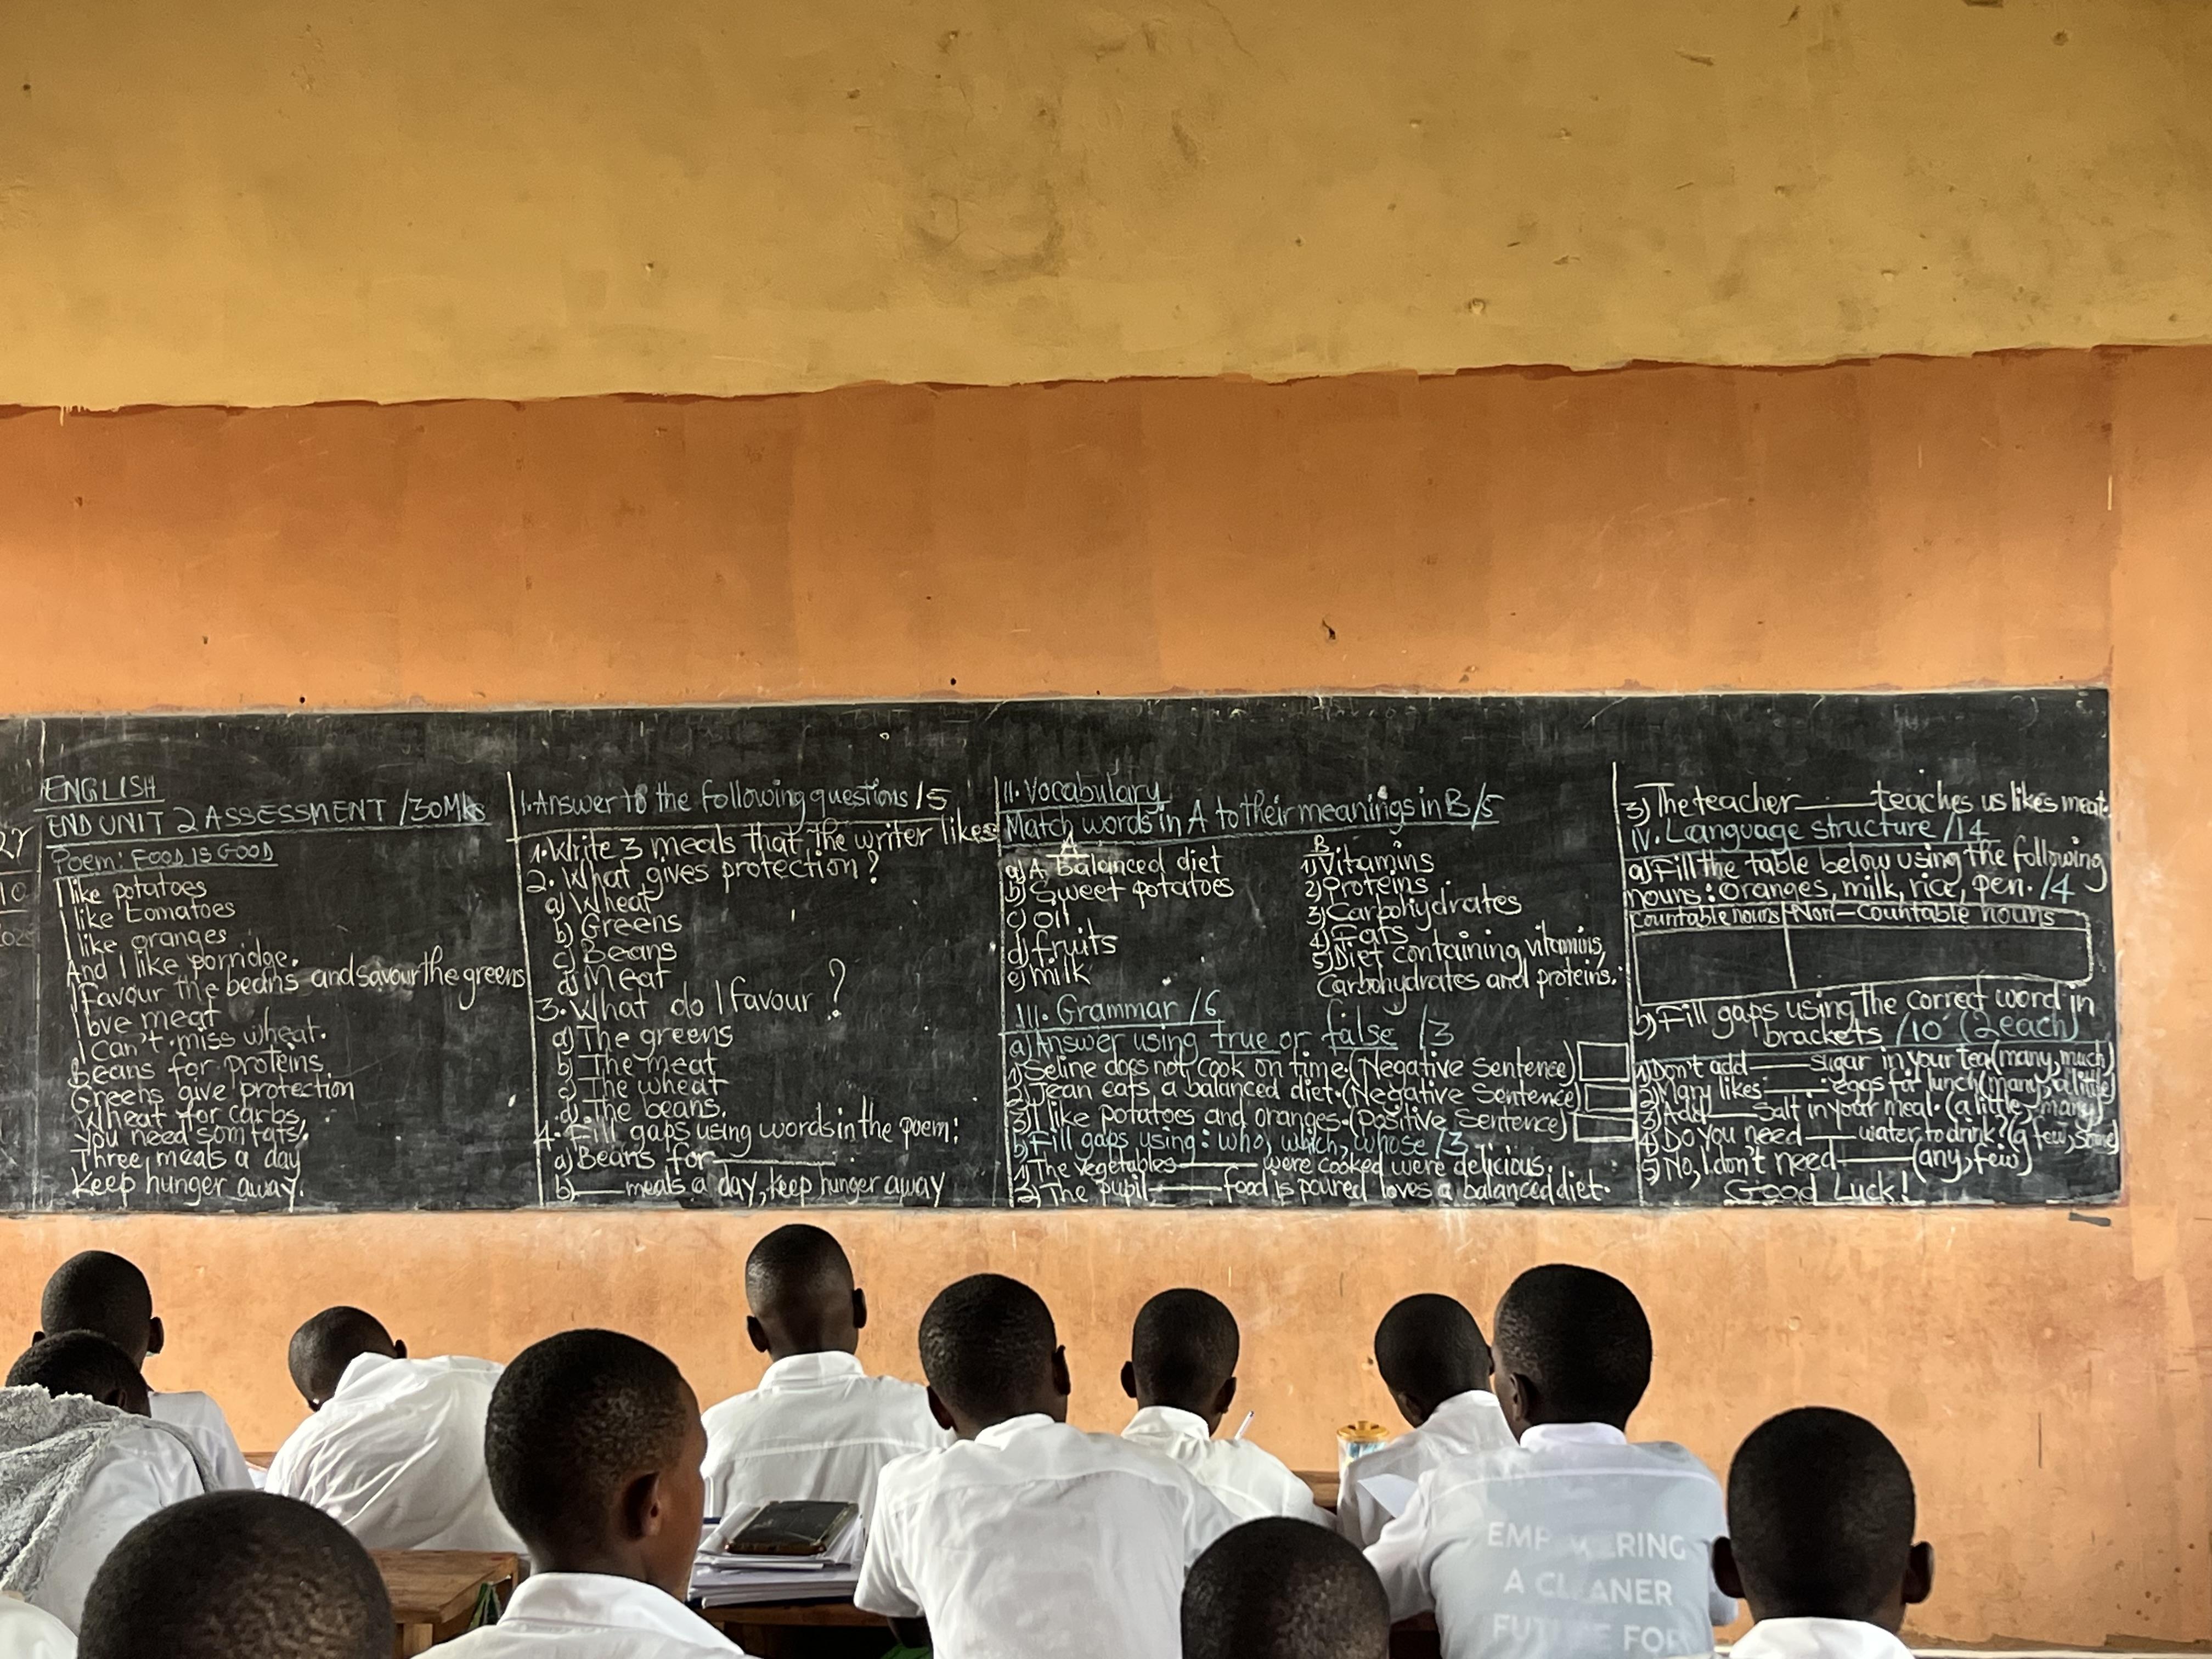 27
10
ENGLISH
END UNIT 2 ASSESSMENT /30Mks
Poem: FOOD IS GOOD
I like potatoes
I like tomatoes
I like oranges
And I like porridge.
I favour the beans and savour the greens
I love meat
I can't miss wheat.
Beans for proteins.
Greens give protection
Wheat for carbs,
You need som fats,
Three meals a day
Keep hunger away.
I. Answer to the following questions /5
1. Write 3 meals that the writer likes
2. What gives protection?
a) Wheat
b) Greens
c) Beans
d) Meat
3. What do I favour?
a) The greens
b) The meat
c) The wheat
d) The beans.
4. Fill gaps using words in the poem:
a) Beans for ________.
b) ____ meals a day, keep hunger away
II. Vocabulary
Match words in A to their meanings in B /5
A
a) A Balanced diet
b) Sweet potatoes
c) Oil
d) fruits
e) milk
B
1) Vitamins
2) Proteins
3) Carbohydrates
4) Fats
5) Diet containing vitamins,
Carbohydrates and proteins.
III. Grammar /6
a) Answer using true or false /3
1) Seline does not cook on time. (Negative Sentence)
2) Jean eats a balanced diet. (Negative Sentence)
3) I like potatoes and oranges. (Positive Sentence)
b) Fill gaps using: who, which, whose /3
1) The vegetables ______ were cooked were delicious.
2) The pupil ______ food is poured loves a balanced diet.
3) The teacher ______ teaches us likes meat.
IV. Language structure /14
a) Fill the table below using the following
nouns: oranges, milk, rice, pen. /4
Countable nouns Non-Countable nouns
b) Fill gaps using the correct word in
brackets /10 (2 each)
1) Don't add ______ sugar in your tea (many, much)
2) Mary likes ______ eggs for lunch (many, a little)
3) Add ____ salt in your meal. (a little, many)
4) Do you need ____ water to drink? (a few, some)
5) No, I don't need ______ (any, few)
Good Luck!
EMPOWERING
A CLEANER
FUTURE FOR